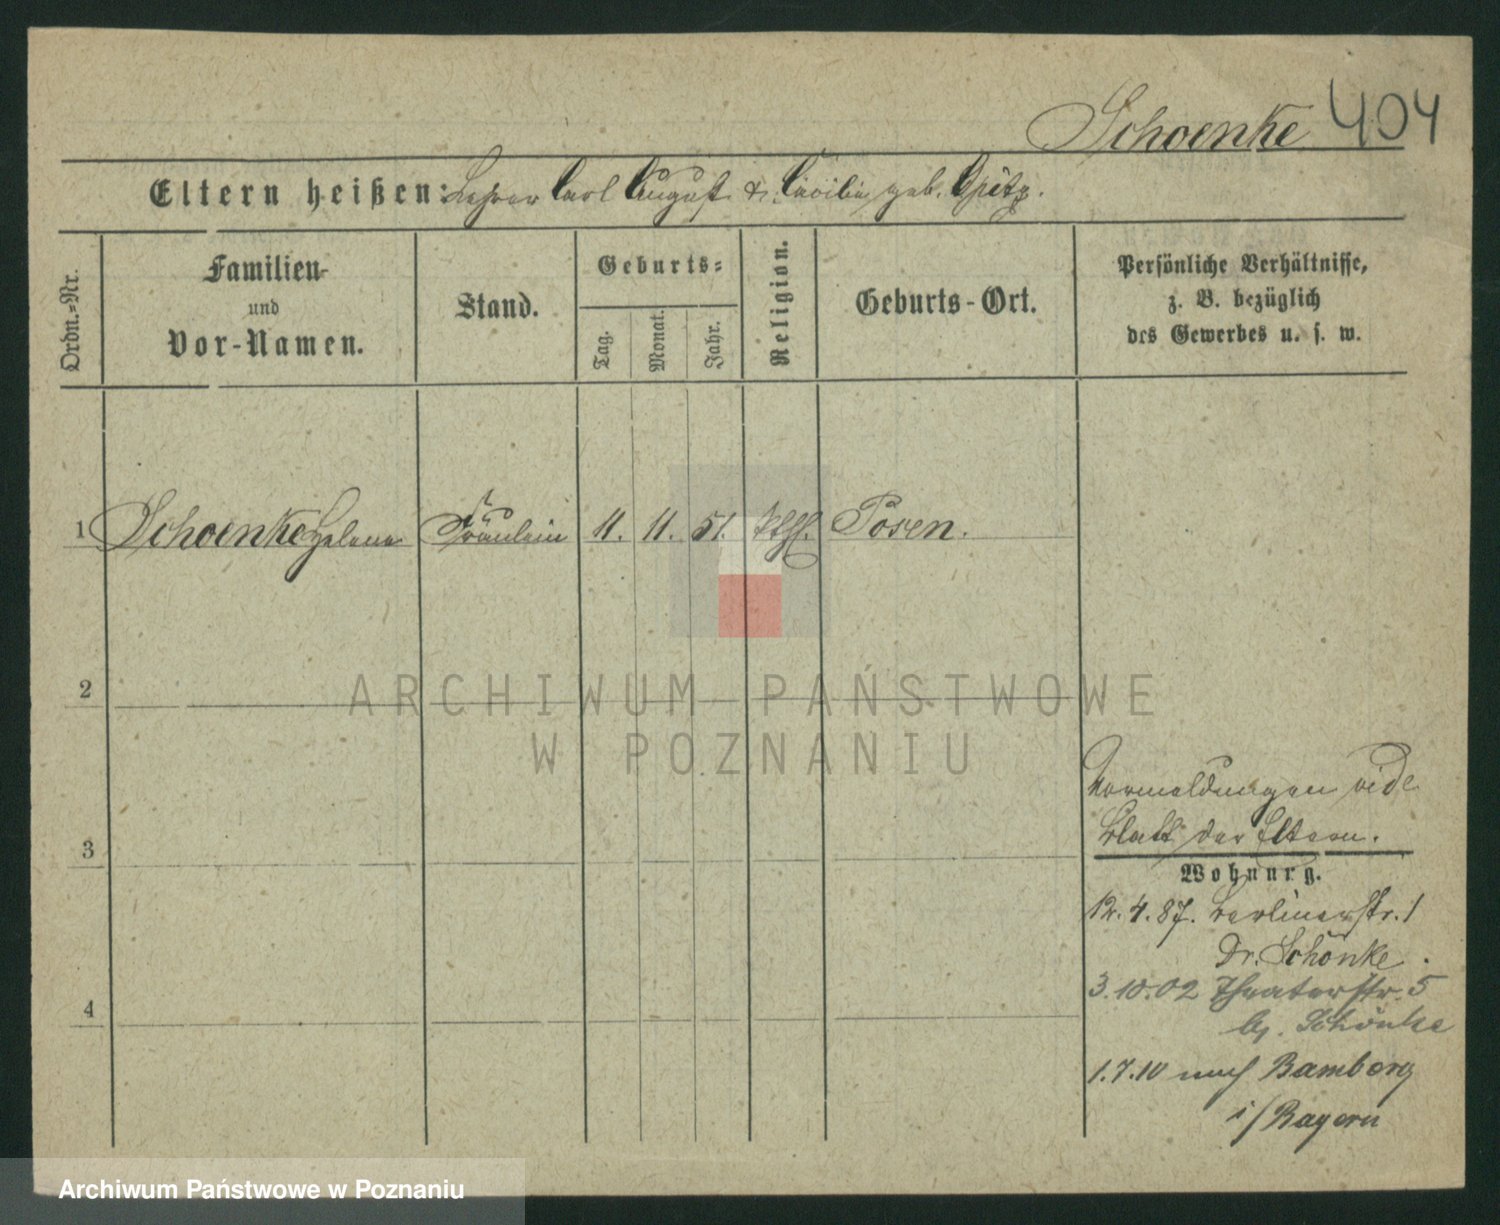 Schoenke 404
Eltern heißen: Lehrer Carl August & Cäcilie geb. Opitz.
Ordn.=Nr.
Familien-
und
Vor-Namen.
Stand.
Geburts=
Tag.
Monat.
Jahr.
Religion.
Geburts-Ort.
Persönliche Verhältnisse,
z. B. bezüglich
des Gewerbes u. s. w.
1 Schoenke Helene Fräulein 11. 11. 51. kthl. Posen.
2
ARCHIWUM PAŃSTWOWE
W POZNANIU
Vormeldungen vide
Blatt der Eltern.
3
Wohnung.
12.4.87. Berlinerstr. 1
Dr. Schönke.
3.10.02 Theaterstr. 5
b/. Schönke
4
1.7.10 nach Bamberg
i/Bayern
Archiwum Państwowe w Poznaniu